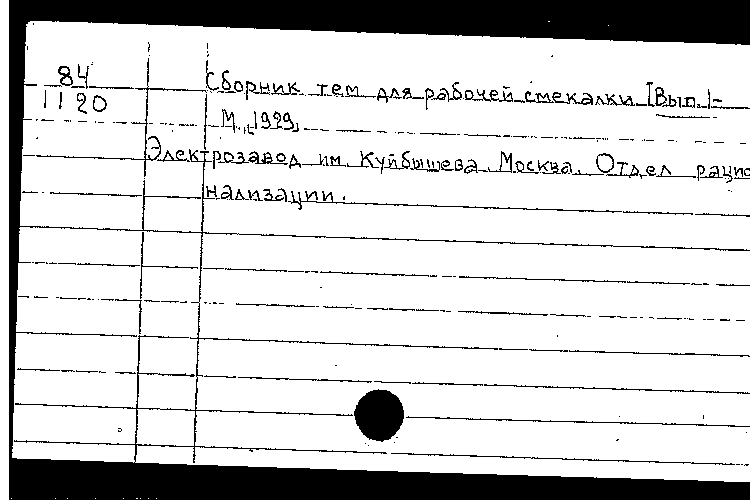 84
1120
Сборник тем для рабочей смекалки [Вып.]-
М., 1929,
Электрозавод им. Куйбышева. Москва. Отдел рацио
нализации.